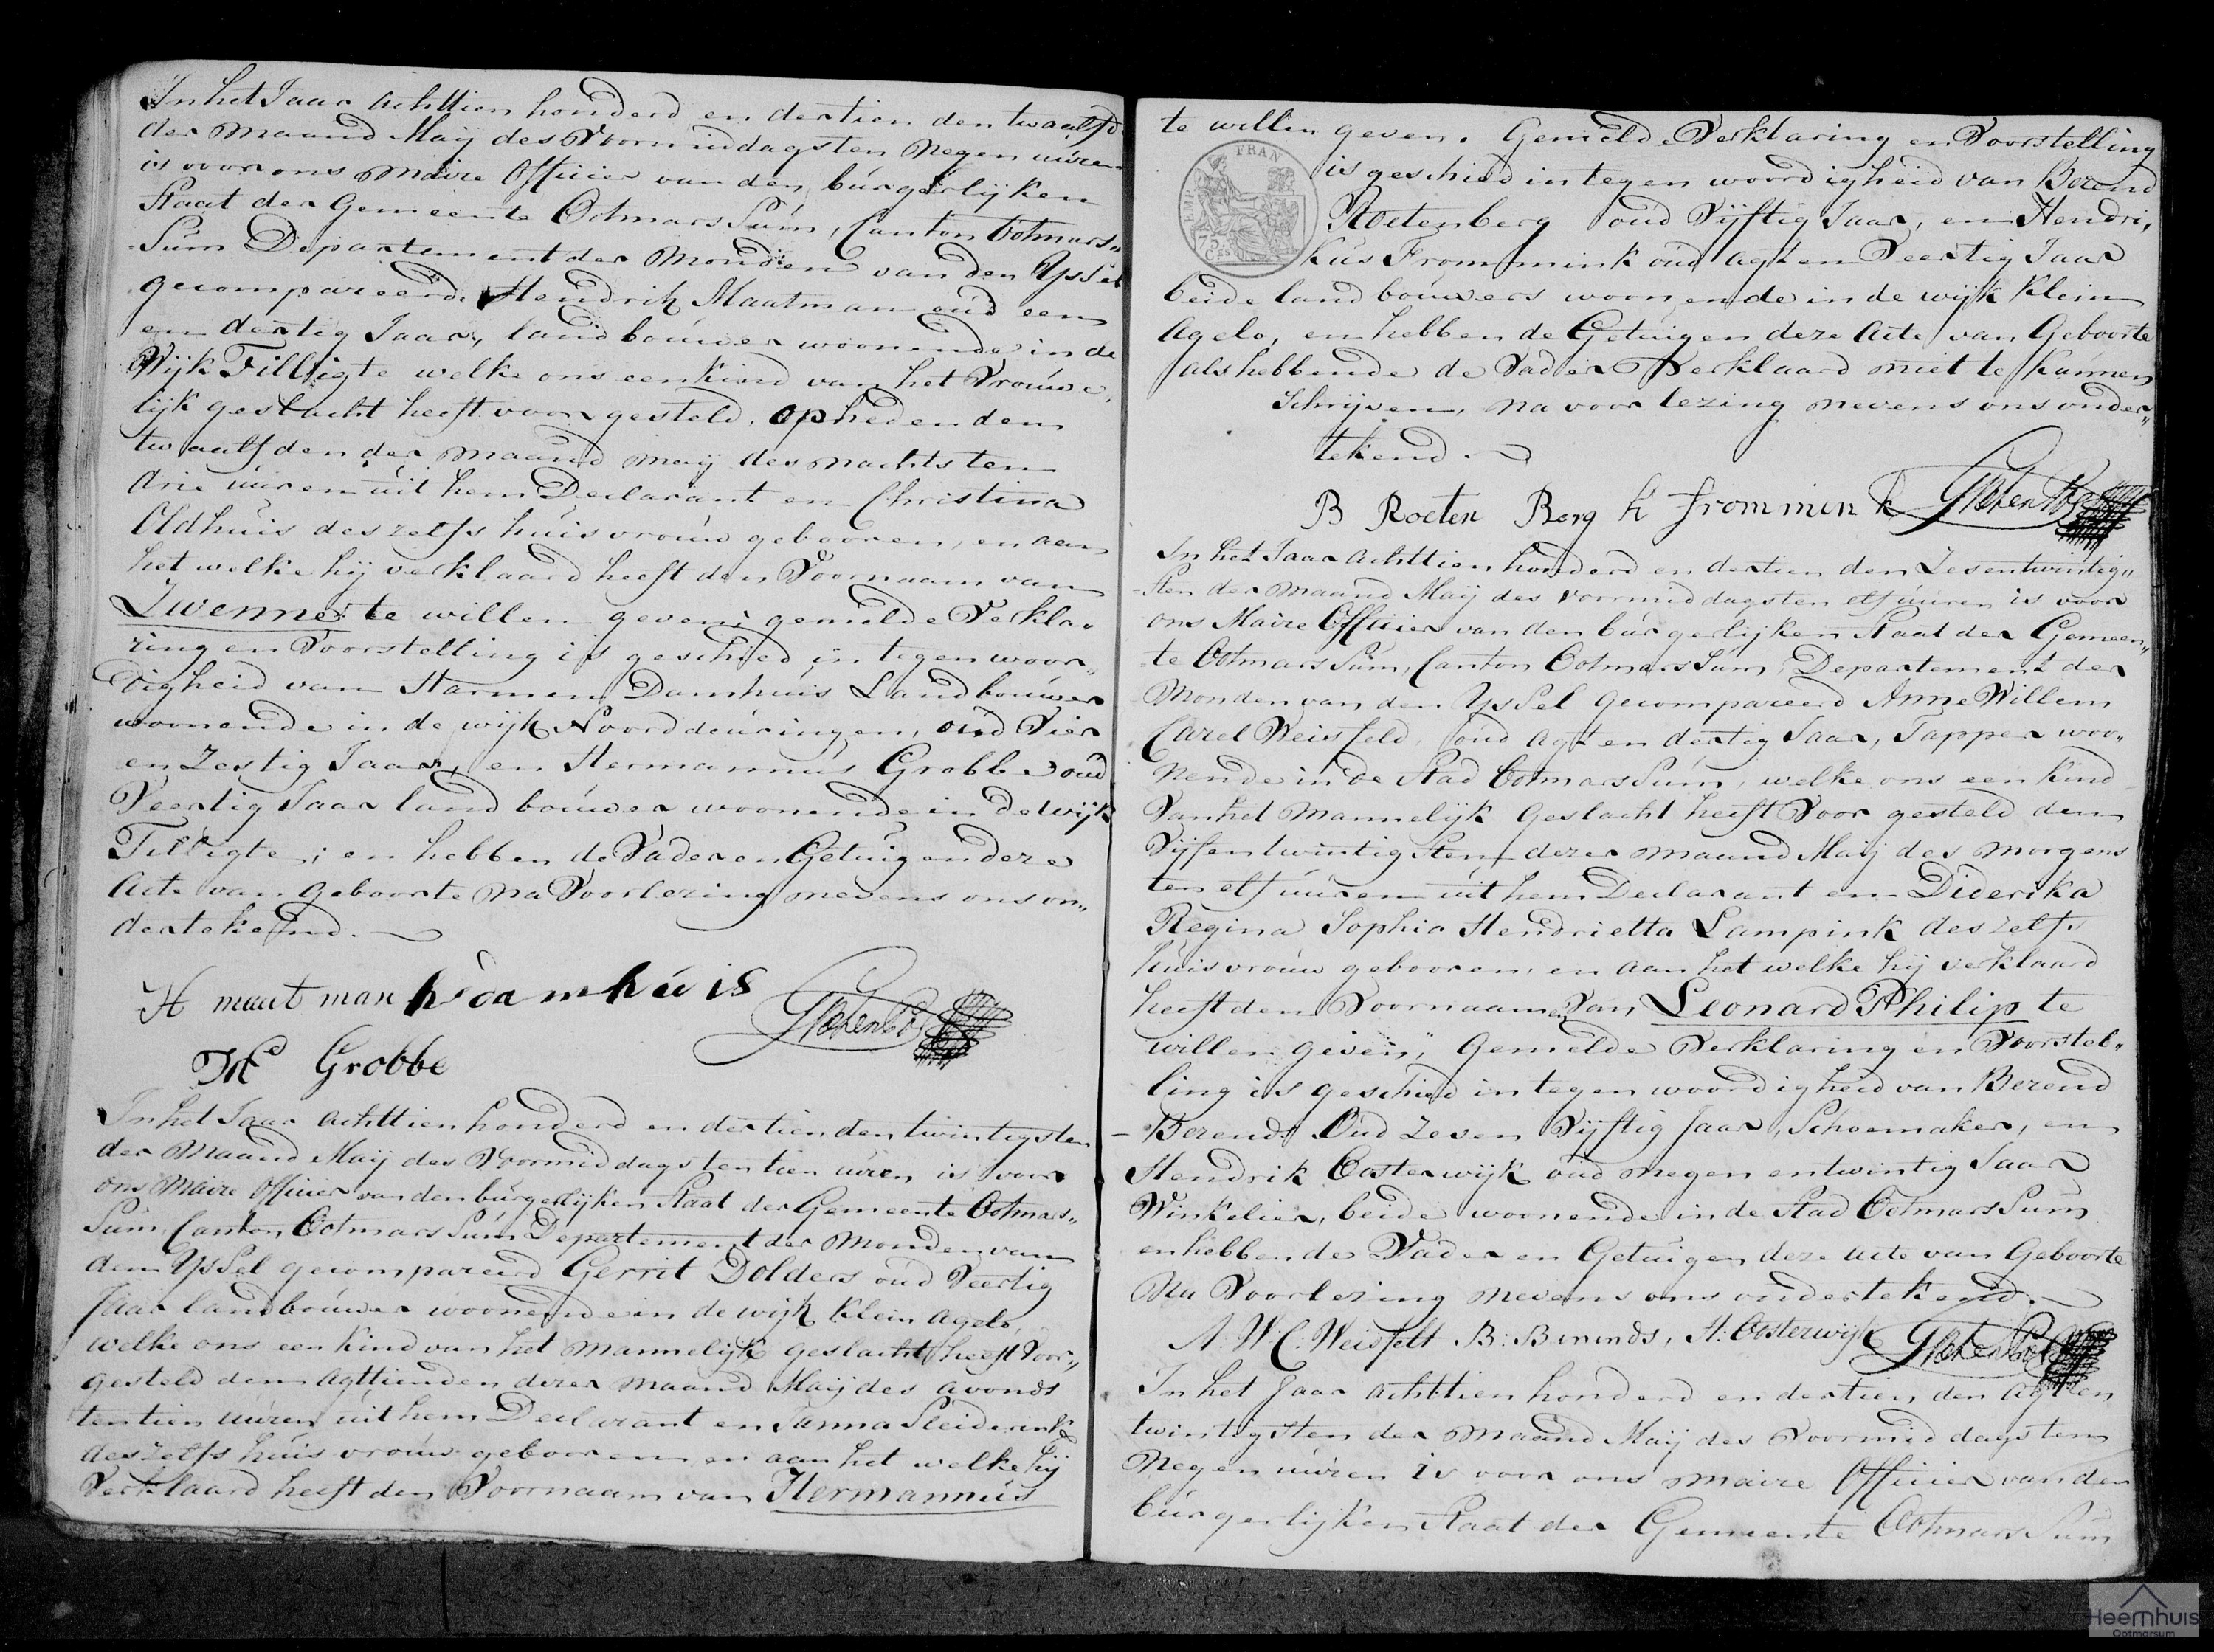 In het Jaar Achttien honderd en dertien den twaalfde
der maand Maij des Voormiddags ten Negen uúren
is voor ons Maire Officier van den búrgerlijken
Staat der Gemeente OotmarsSúm, Canton Ootmars„
Súm Departement der Monden van den YsSel
gecompareerd Hendrik Maatman oúd een
en dertig Jaar, landboúwer woonende in de
Wijk Tilligte welke ons een kind van het Vroúwe„
lijk geslacht heeft voor gesteld, op heden den
twaalfden der maand maij des nachts ten
drie úúren úit hem Declarant en Christina
Oldhúis deszelfs húisvroúw gebooren, en aan
het welke hij verklaard heeft den Voornaam van
Zwenne te willen geven; gemelde Verkla„
ring en Voorstelling is geschied in tegenwoor„
digheid van Harmen Damhúis Landboúwer
woonende in de wijk Noorddeúringen, oúd Vier
en Zestig Jaar, en Hermannús Grobbe oud
Veertig Jaar landboúwer woonende in de wijk
Tilligte; en hebben de Vader en Getúigen deze
Acte van Geboorte na Voorlezing nevens ons on„
dertekend.
H maatman h damhúis
Hs Grobbe
In het Jaar Achttien honderd en dertien den twintigsten
der Maand Maij des Voormiddags ten tien uúren is voor
ons Maire Officier van den búrgerlijken Staat der Gemeente Ootmars„
Súm Canton OotmarsSúm Departement der Monden van
den YsSel gecompareerd Gerrit Dolders oúd Veertig
Jaar landboúwer woonende in de wijk Klein Agelo,
welke ons een kind van het Mannelijk geslacht heeft Voor„
gesteld den Agttienden dezer maand Maij des avonds
ten tien uúren úit hem Declarant en Janna Sleiderink
deszelfs húisvroúw gebooren en aan het welke hij
Verklaard heeft den Voornaam van Hermannús
te willen geven. Gemelde Verklaring en Voorstelling
FRAN
EMP
75
Ces
is geschied in tegenwoordigheid van Berend
Roetenberg oúd Vijftig Jaar, en Hendri„
kús Frommink oúd Agt en Veertig Jaar
beide landboúwers woonende in de wijk Klein
Agelo, en hebben de Getúigen deze Acte van Geboorte
als hebbende de Vader Verklaard niet te kunnen
Schrijven, na voorlezing nevens ons onder„
tekend.
B Roeten Berg H frommink
In het Jaar Achttien honderd en dertien den Zesentwintig„
sten der Maand Maij des voormiddags ten elf uúren is voor
ons Maire Officier van den búrgerlijken Staat der Gemeen„
te OotmarsSúm, Canton OotmarsSúm, Departement der
Monden van den YsSel gecompareerd Anne Willem
Carel Weisfeld, oúd Agt en dertig Jaar, Tapper woo„
nende in de Stad OotmarsSúm, welke ons een kind
Van het Mannelijk Geslacht heeft Voor gesteld den
Vijfentwintigsten dezer maand Maij des morgens
ten elf uúren úit hem Declarant en Diderika
Regina Sophia Hendrietta Lampink deszelfs
húisvroúw gebooren, en aan het welke hij verklaard
heeft den Voornaamen Van Leonard Philip te
willen geven, Gemelde Verklaring en Voorstel„
ling is geschied in tegenwoordigheid van Berend
Berends Oúd Zeven Vijftig Jaar, Schoemaker, en
Hendrik Oosterwijk oúd negen entwintig Jaar
Winkelier, beide woonende in de Stad OotmarsSúm
en hebben de Vader en Getúigen deze acte van Geboorte
Na Voorlezing nevens ons ondertekend.
A. W. C. Weisfelt B: Berends, H: Oosterwijk
In het Jaar Achttien honderd en dertien, den Agt en
twintigsten der Maand Maij des Voormiddags ten
Negen uúren is voor ons Maire Officier van den
búrgerlijken Staat der Gemeente OotmarsSúm
Heemhuis
Ootmarsum